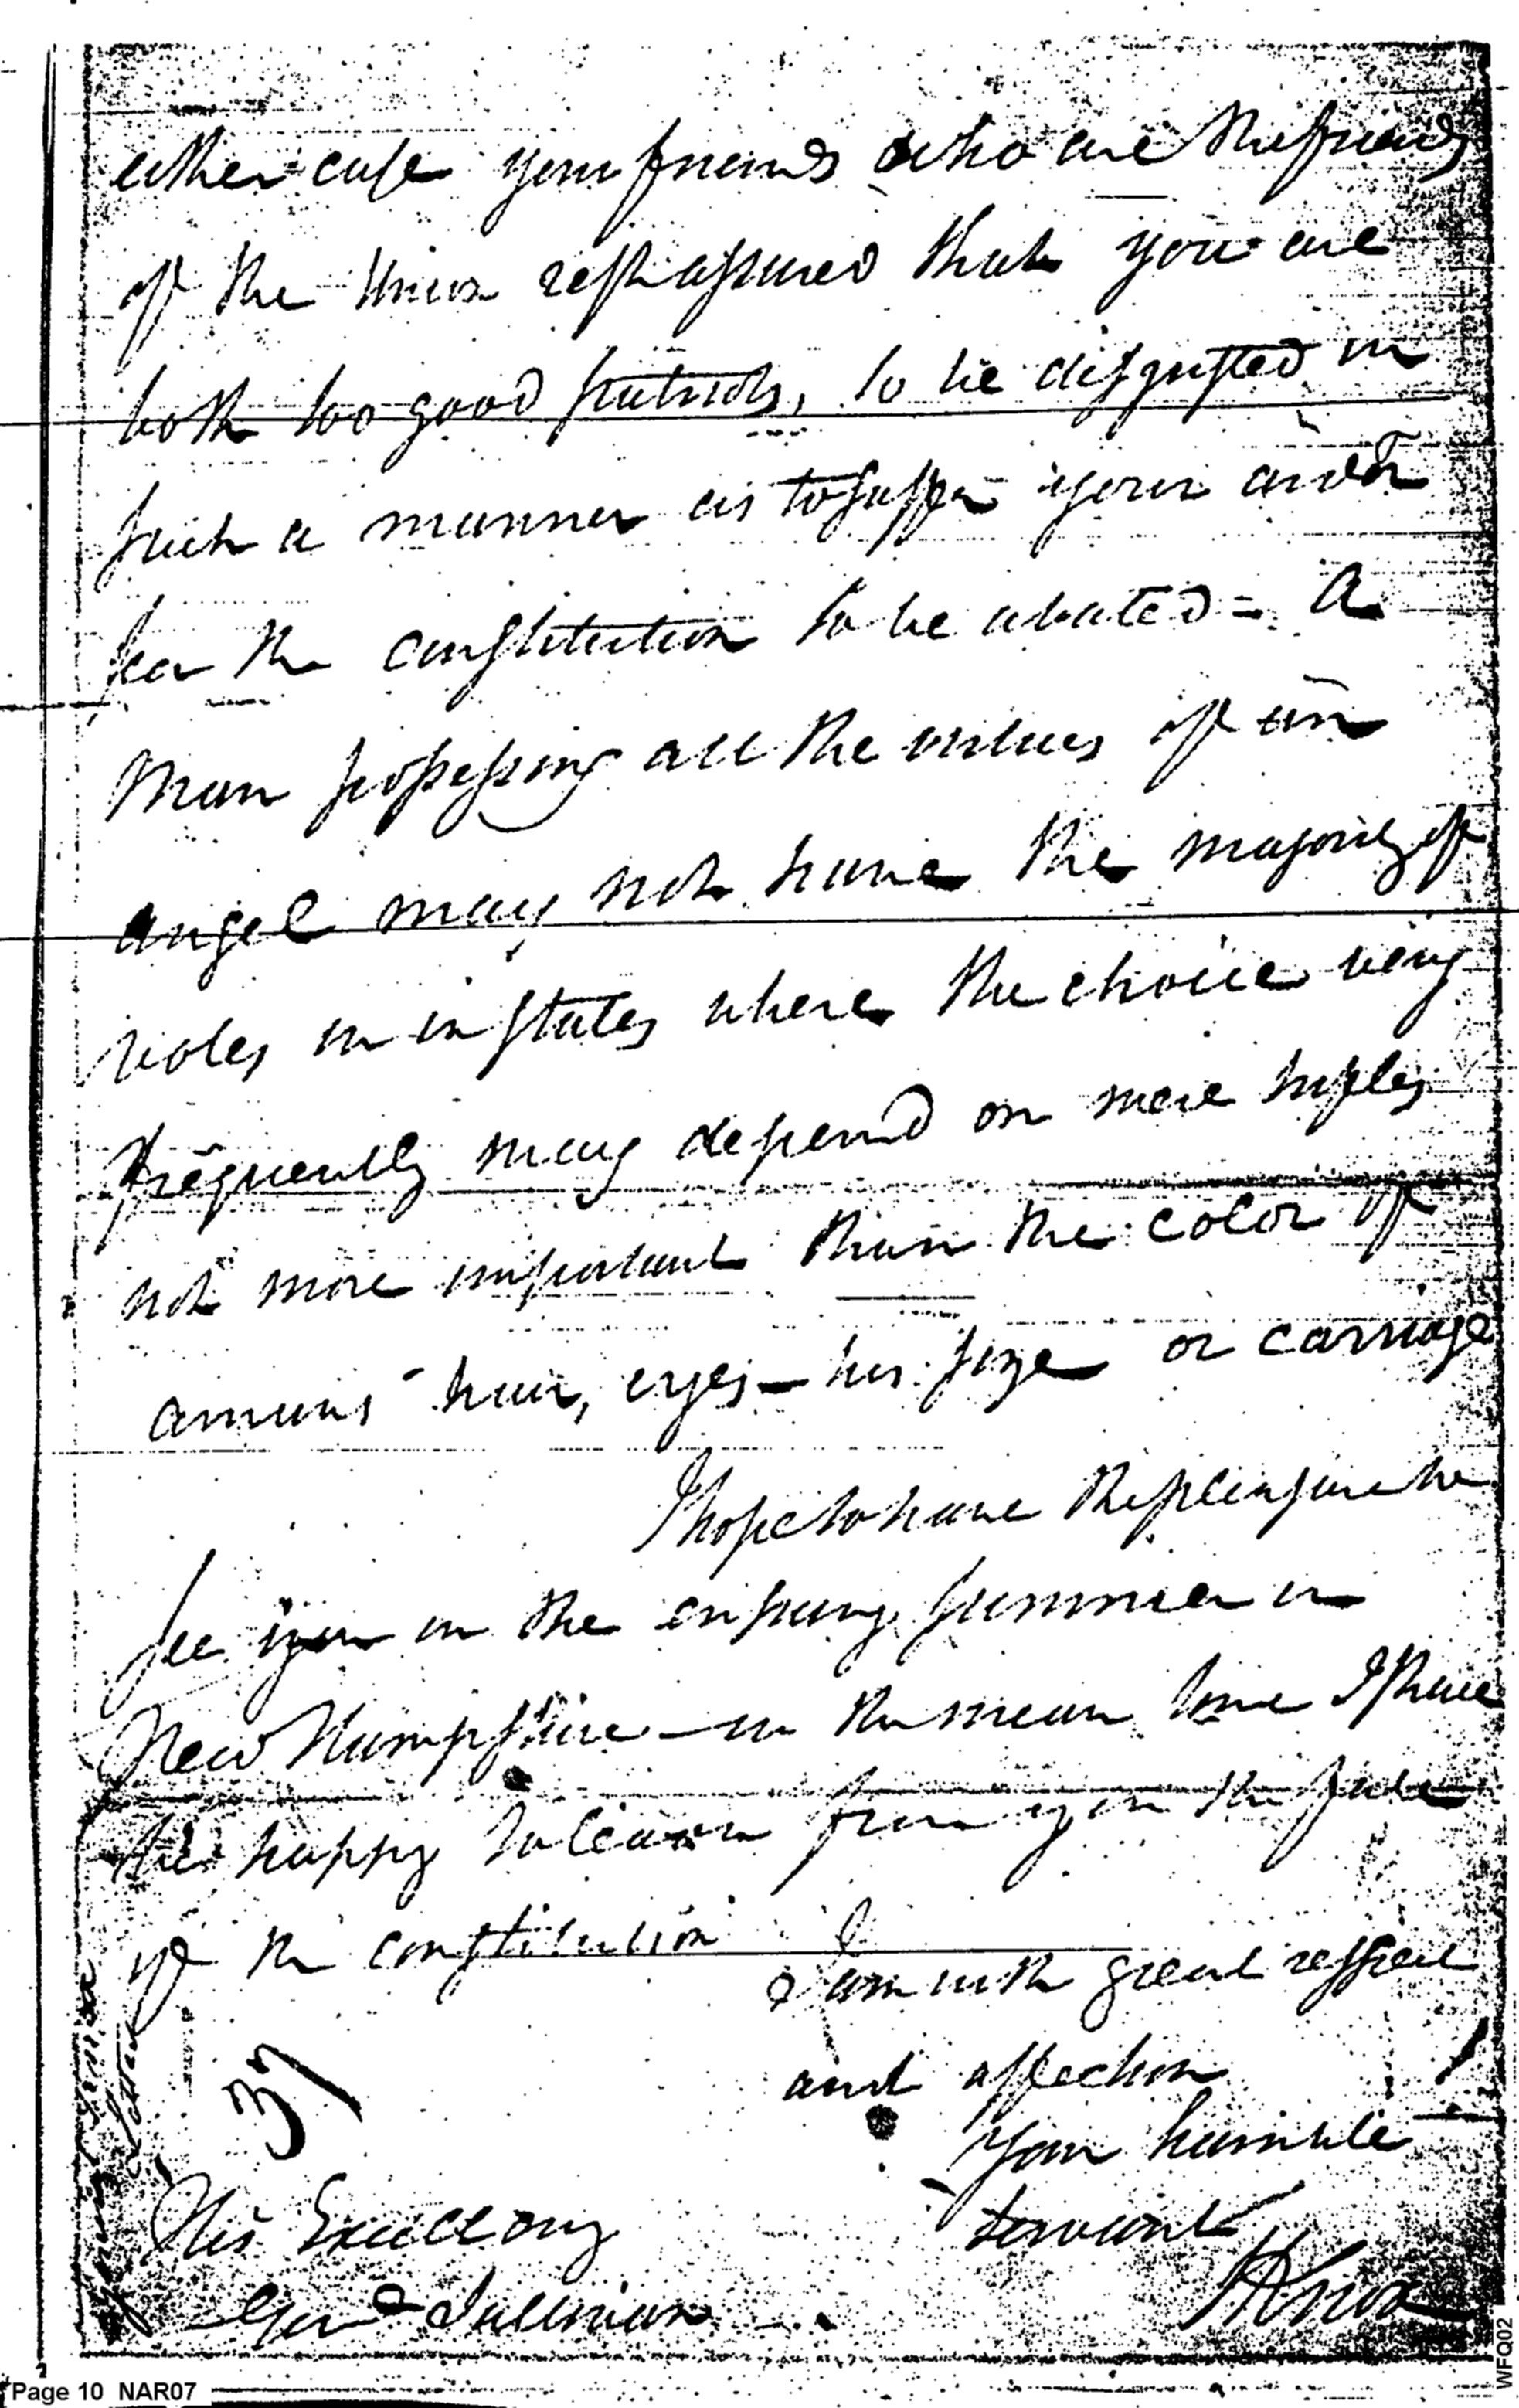 either case your friends who are the friends
of the Union rest assured that you are
both too good patriots, to be disgusted in
such a manner as to suffer your ardor
for the constitution to be abated = A
Man possessing all the virtues of an
angel may not have the majority of
votes in in states where the choice being
frequently may depend on mere trifles
not more important than the color of
a mans hair, eyes – his size or carriage
I hope to have the pleasure to
see you in the ensuing summer in
New Hampshire – in the mean time I shall
be happy to learn from you the fate
of the constitution
I am with great respect
and affection
Your humble
Servant
HKnox
37
His Excellency
Genl Sullivan
Page 10 NAR07
WFQ02